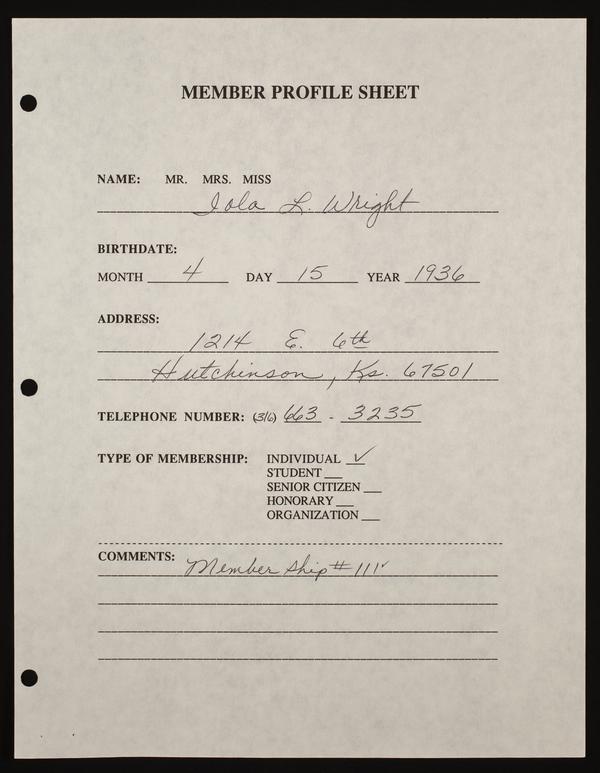 MEMBER PROFILE SHEET
NAME: MR. MRS. MISS
Iola L. Wright
BIRTHDATE:
MONTH 4 DAY 15 YEAR 1936
ADDRESS:
1214 E. 6th
Hutchinson, Ks. 67501
TELEPHONE NUMBER: (316) 663 - 3235
TYPE OF MEMBERSHIP: INDIVIDUAL ✓
STUDENT
SENIOR CITIZEN
HONORARY
ORGANIZATION
COMMENTS: Member ship # 111